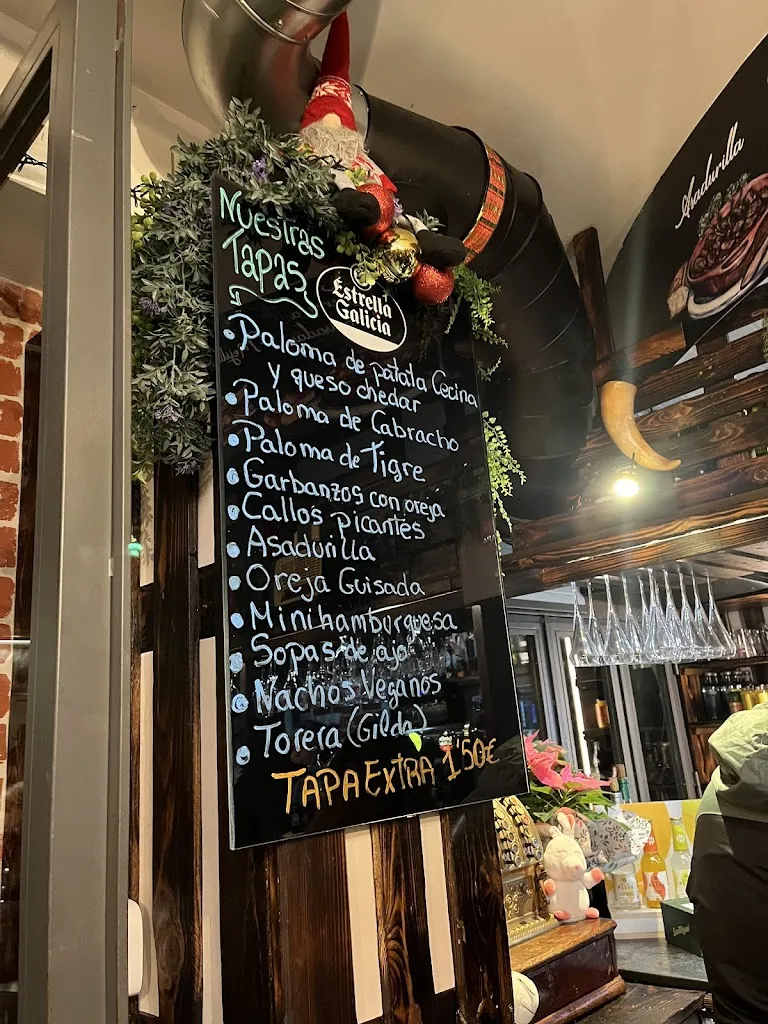 Nuestras
Tapas
Estrella
Galicia
• Paloma de patata Cecina
y queso chedar
• Paloma de Cabracho
• Paloma de Tigre
• Garbanzos con oreja
• Callos picantes
• Asadurilla
• Oreja Guisada
• Minihamburguesa
• Sopas de ajo
• Nachos Veganos
• Torera (Gilda)
TAPA EXTRA 1'50€
Asadurilla